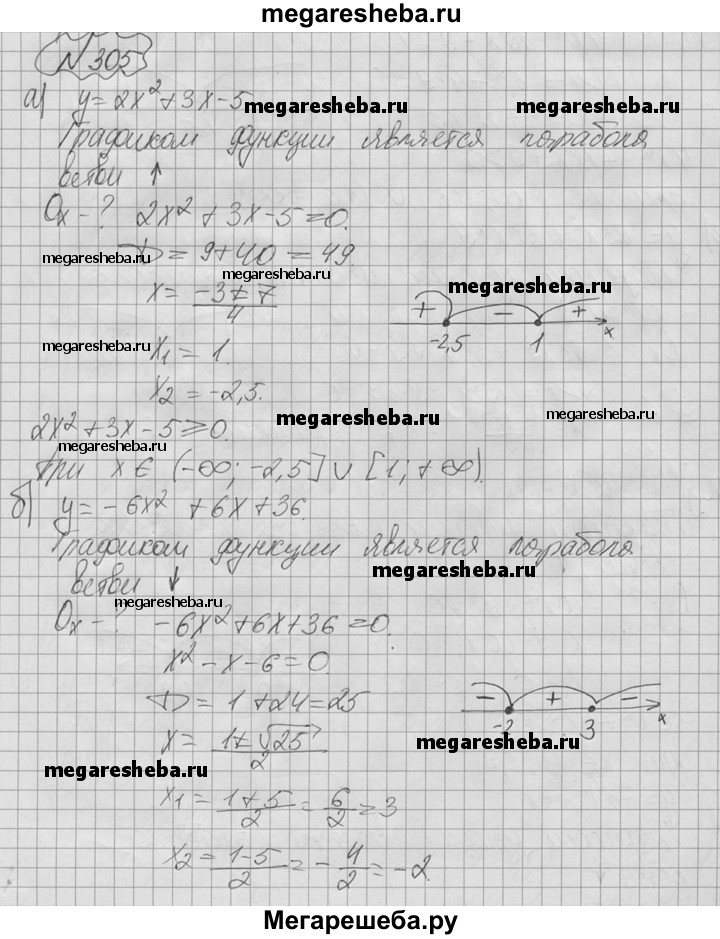 megaresheba.ru
N 305
а) y = 2x² + 3x - 5 megaresheba.ru megaresheba.ru
Графиком функции является парабола
ветви ↑
Ox - ? 2x² + 3x - 5 = 0.
D = 9 + 40 = 49.
megaresheba.ru megaresheba.ru
x = (-3 ± 7)/4
megaresheba.ru
+ - +
-2,5 1 x
megaresheba.ru x₁ = 1.
x₂ = -2,5.
megaresheba.ru megaresheba.ru
2x² + 3x - 5 ⩾ 0.
megaresheba.ru
при x ∈ (-∞; -2,5] ∪ [1; +∞).
б) y = -6x² + 6x + 36.
Графиком функции является парабола
megaresheba.ru
ветви ↓
megaresheba.ru
Ox - ? -6x² + 6x + 36 = 0.
x² - x - 6 = 0.
D = 1 + 24 = 25
- + -
-2 3 x
x = (1 ± √25)/2
megaresheba.ru
megaresheba.ru
x₁ = (1 + 5)/2 = 6/2 = 3
x₂ = (1 - 5)/2 = - 4/2 = -2.
Мегарешеба.ру